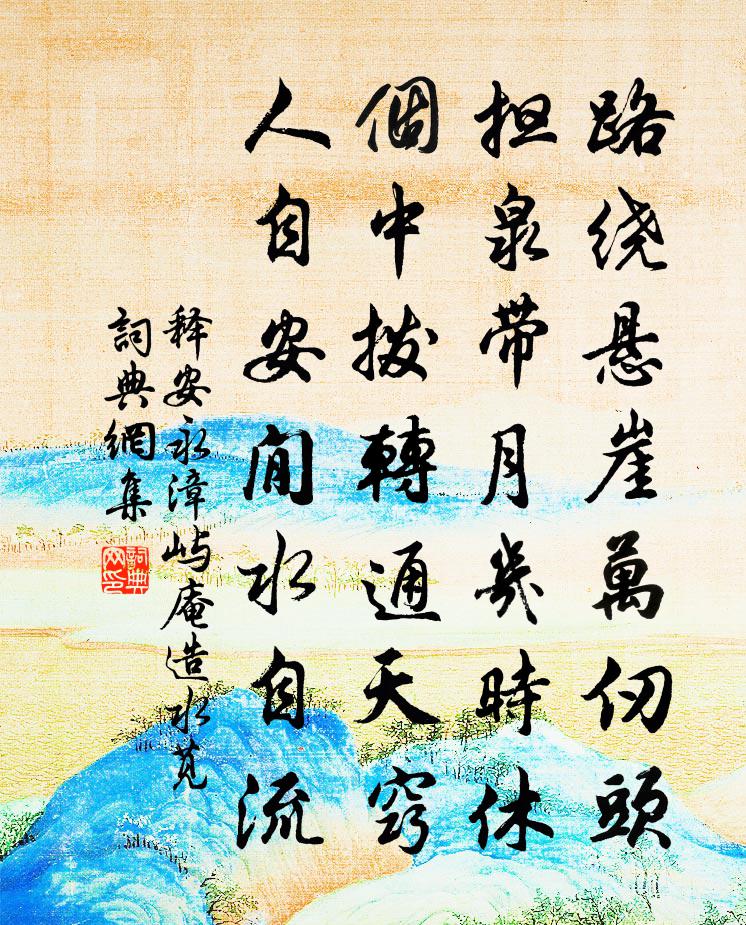 路绕悬崖萬仞頭
担泉带月幾時休
個中拨轉通天窍
人自安闲水自流
释安永漳屿庵造水笕
詞典網集
詞典
网印